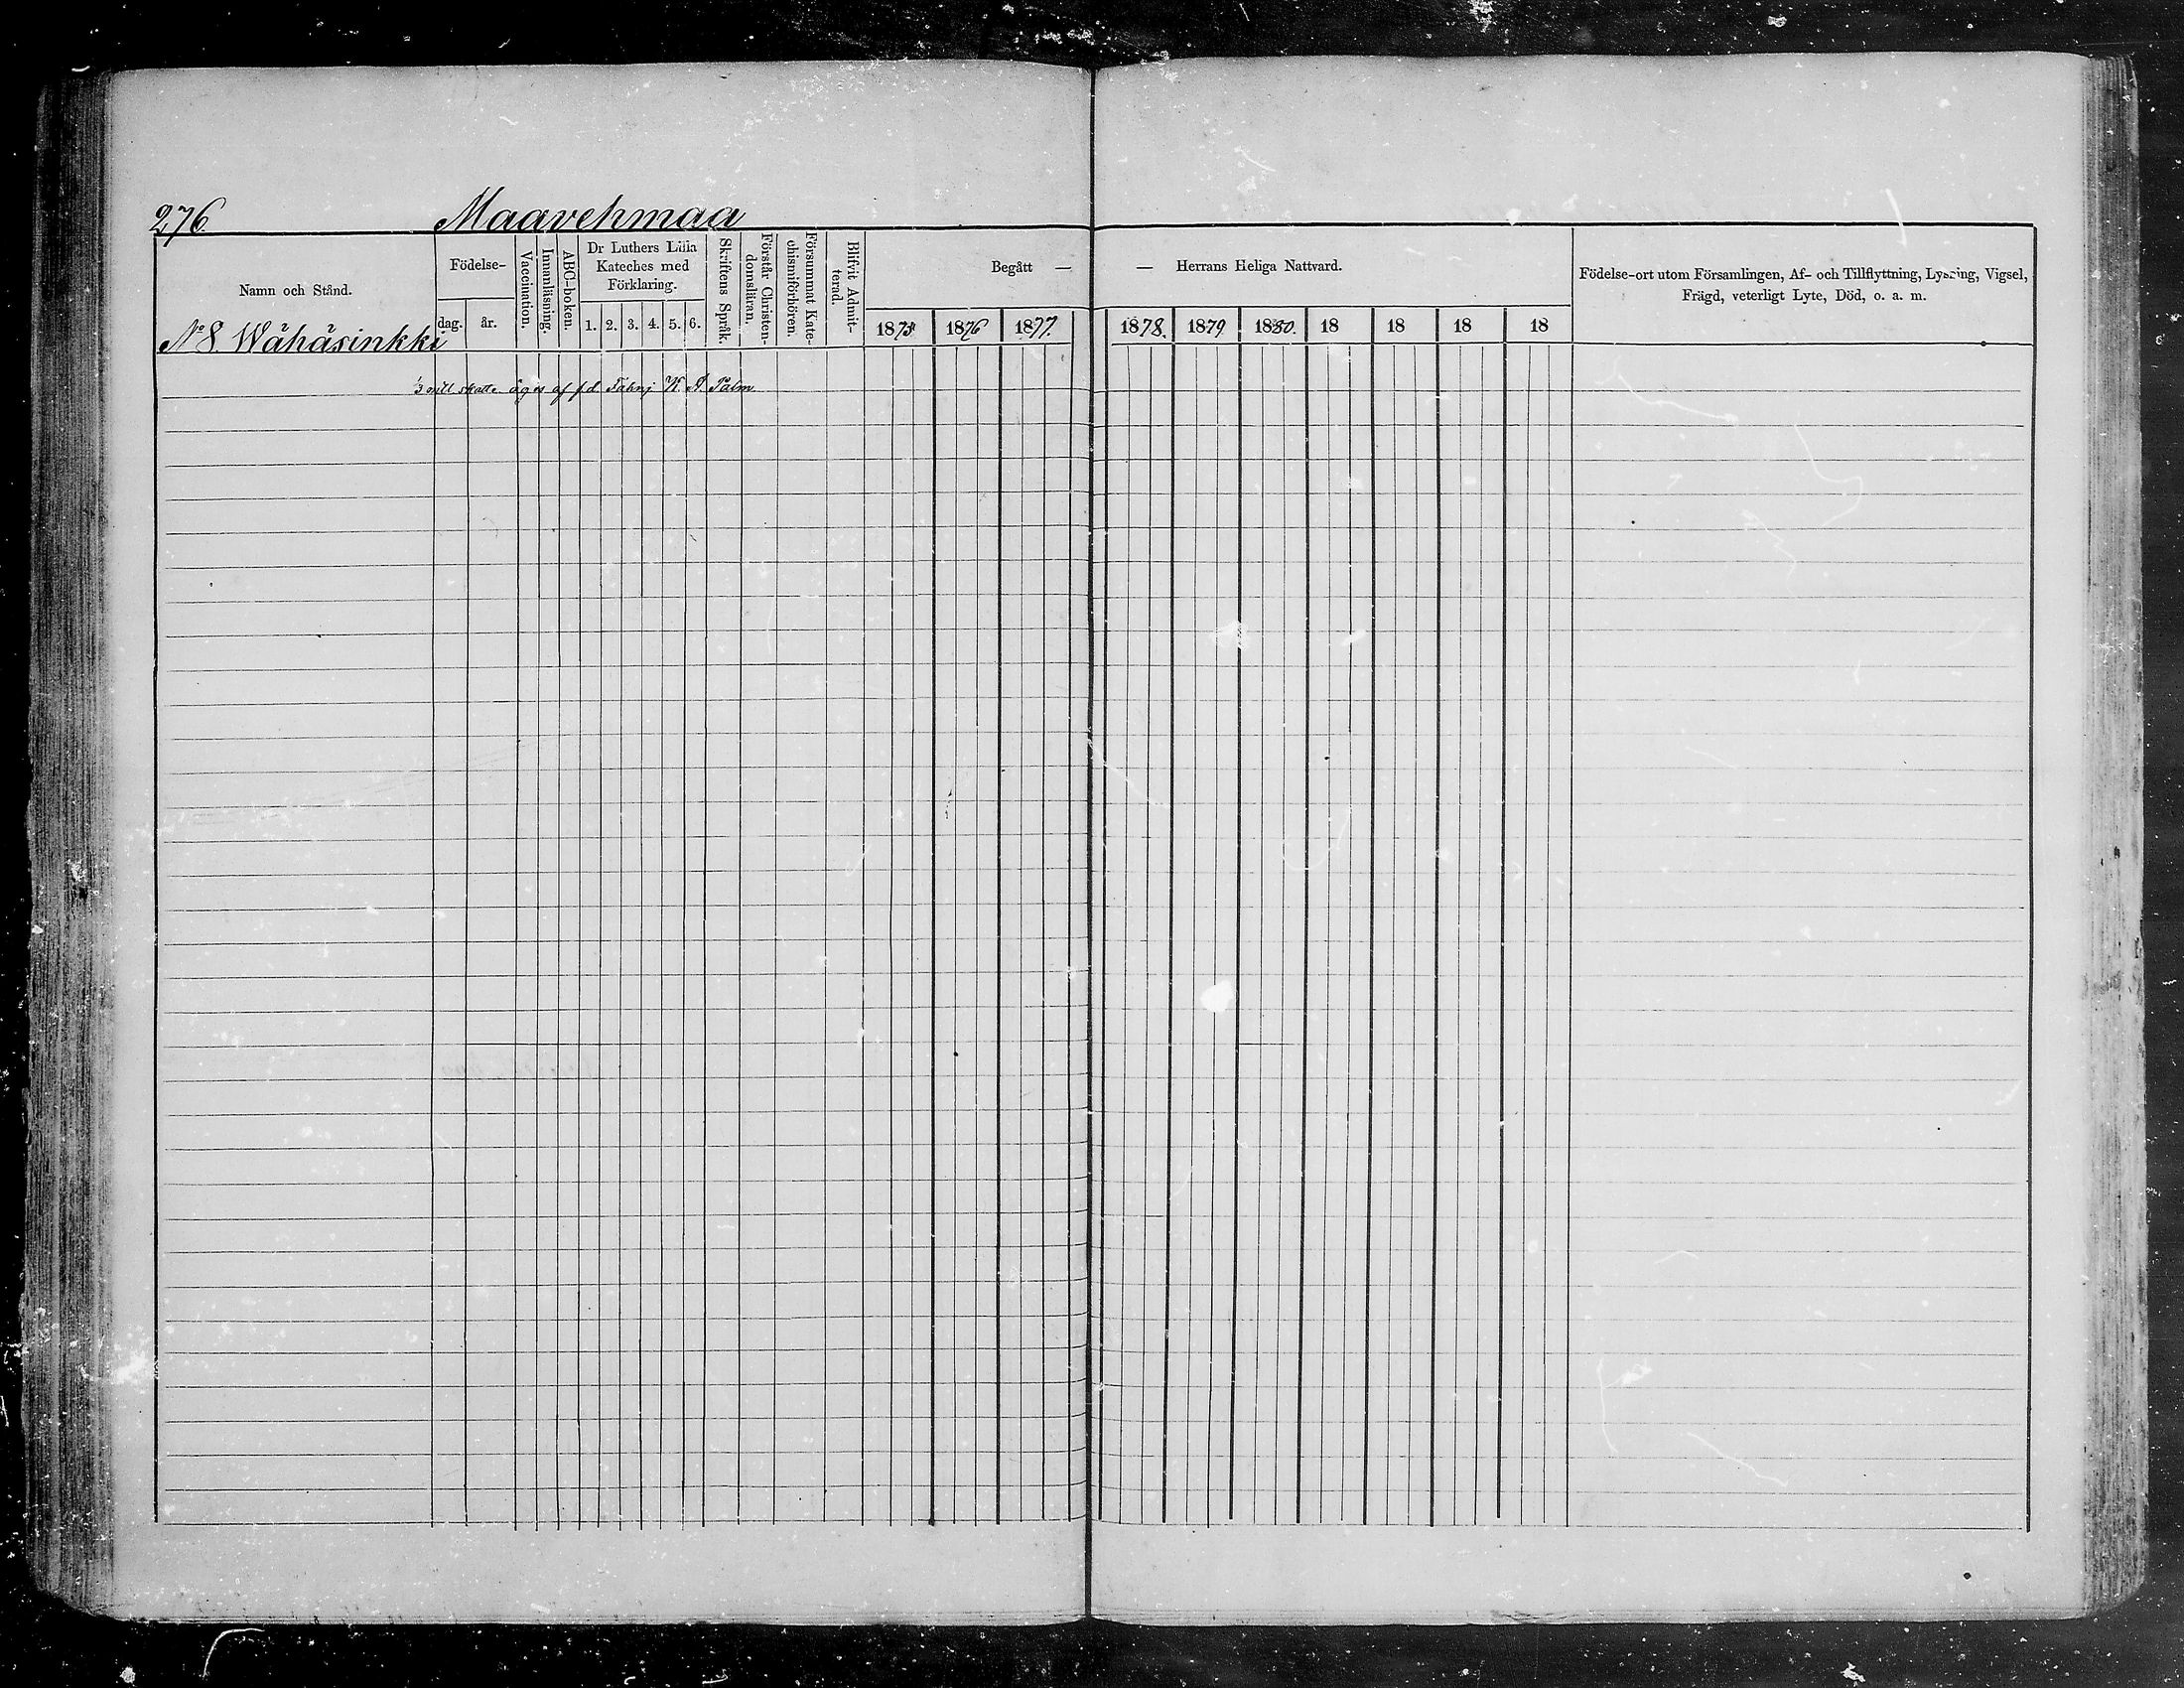 276 Maavehmaa
Namn och Stånd.
Födelse-
dag. år.
Vaccination.
Innanläsning.
ABC-boken.
Dr Luthers Lilla
Kateches med
Förklaring.
1. 2. 3. 4. 5. 6.
Skriftens Språk.
Förstår Christen-
domsläran.
Försummat Kate-
chismiförhören.
Blifvit Admit-
terad.
Begått — — Herrans Heliga Nattvard.
1875 1876 1877. 1878. 1879 1880. 18 18 18 18
Födelse-ort utom Församlingen, Af- och Tillflyttning, Lysning, Vigsel,
Frägd, veterligt Lyte, Död, o. a. m.
No 8. Wähäsinkki
1/3 mtll skatte äges af f d Fabrij K. A. Palm